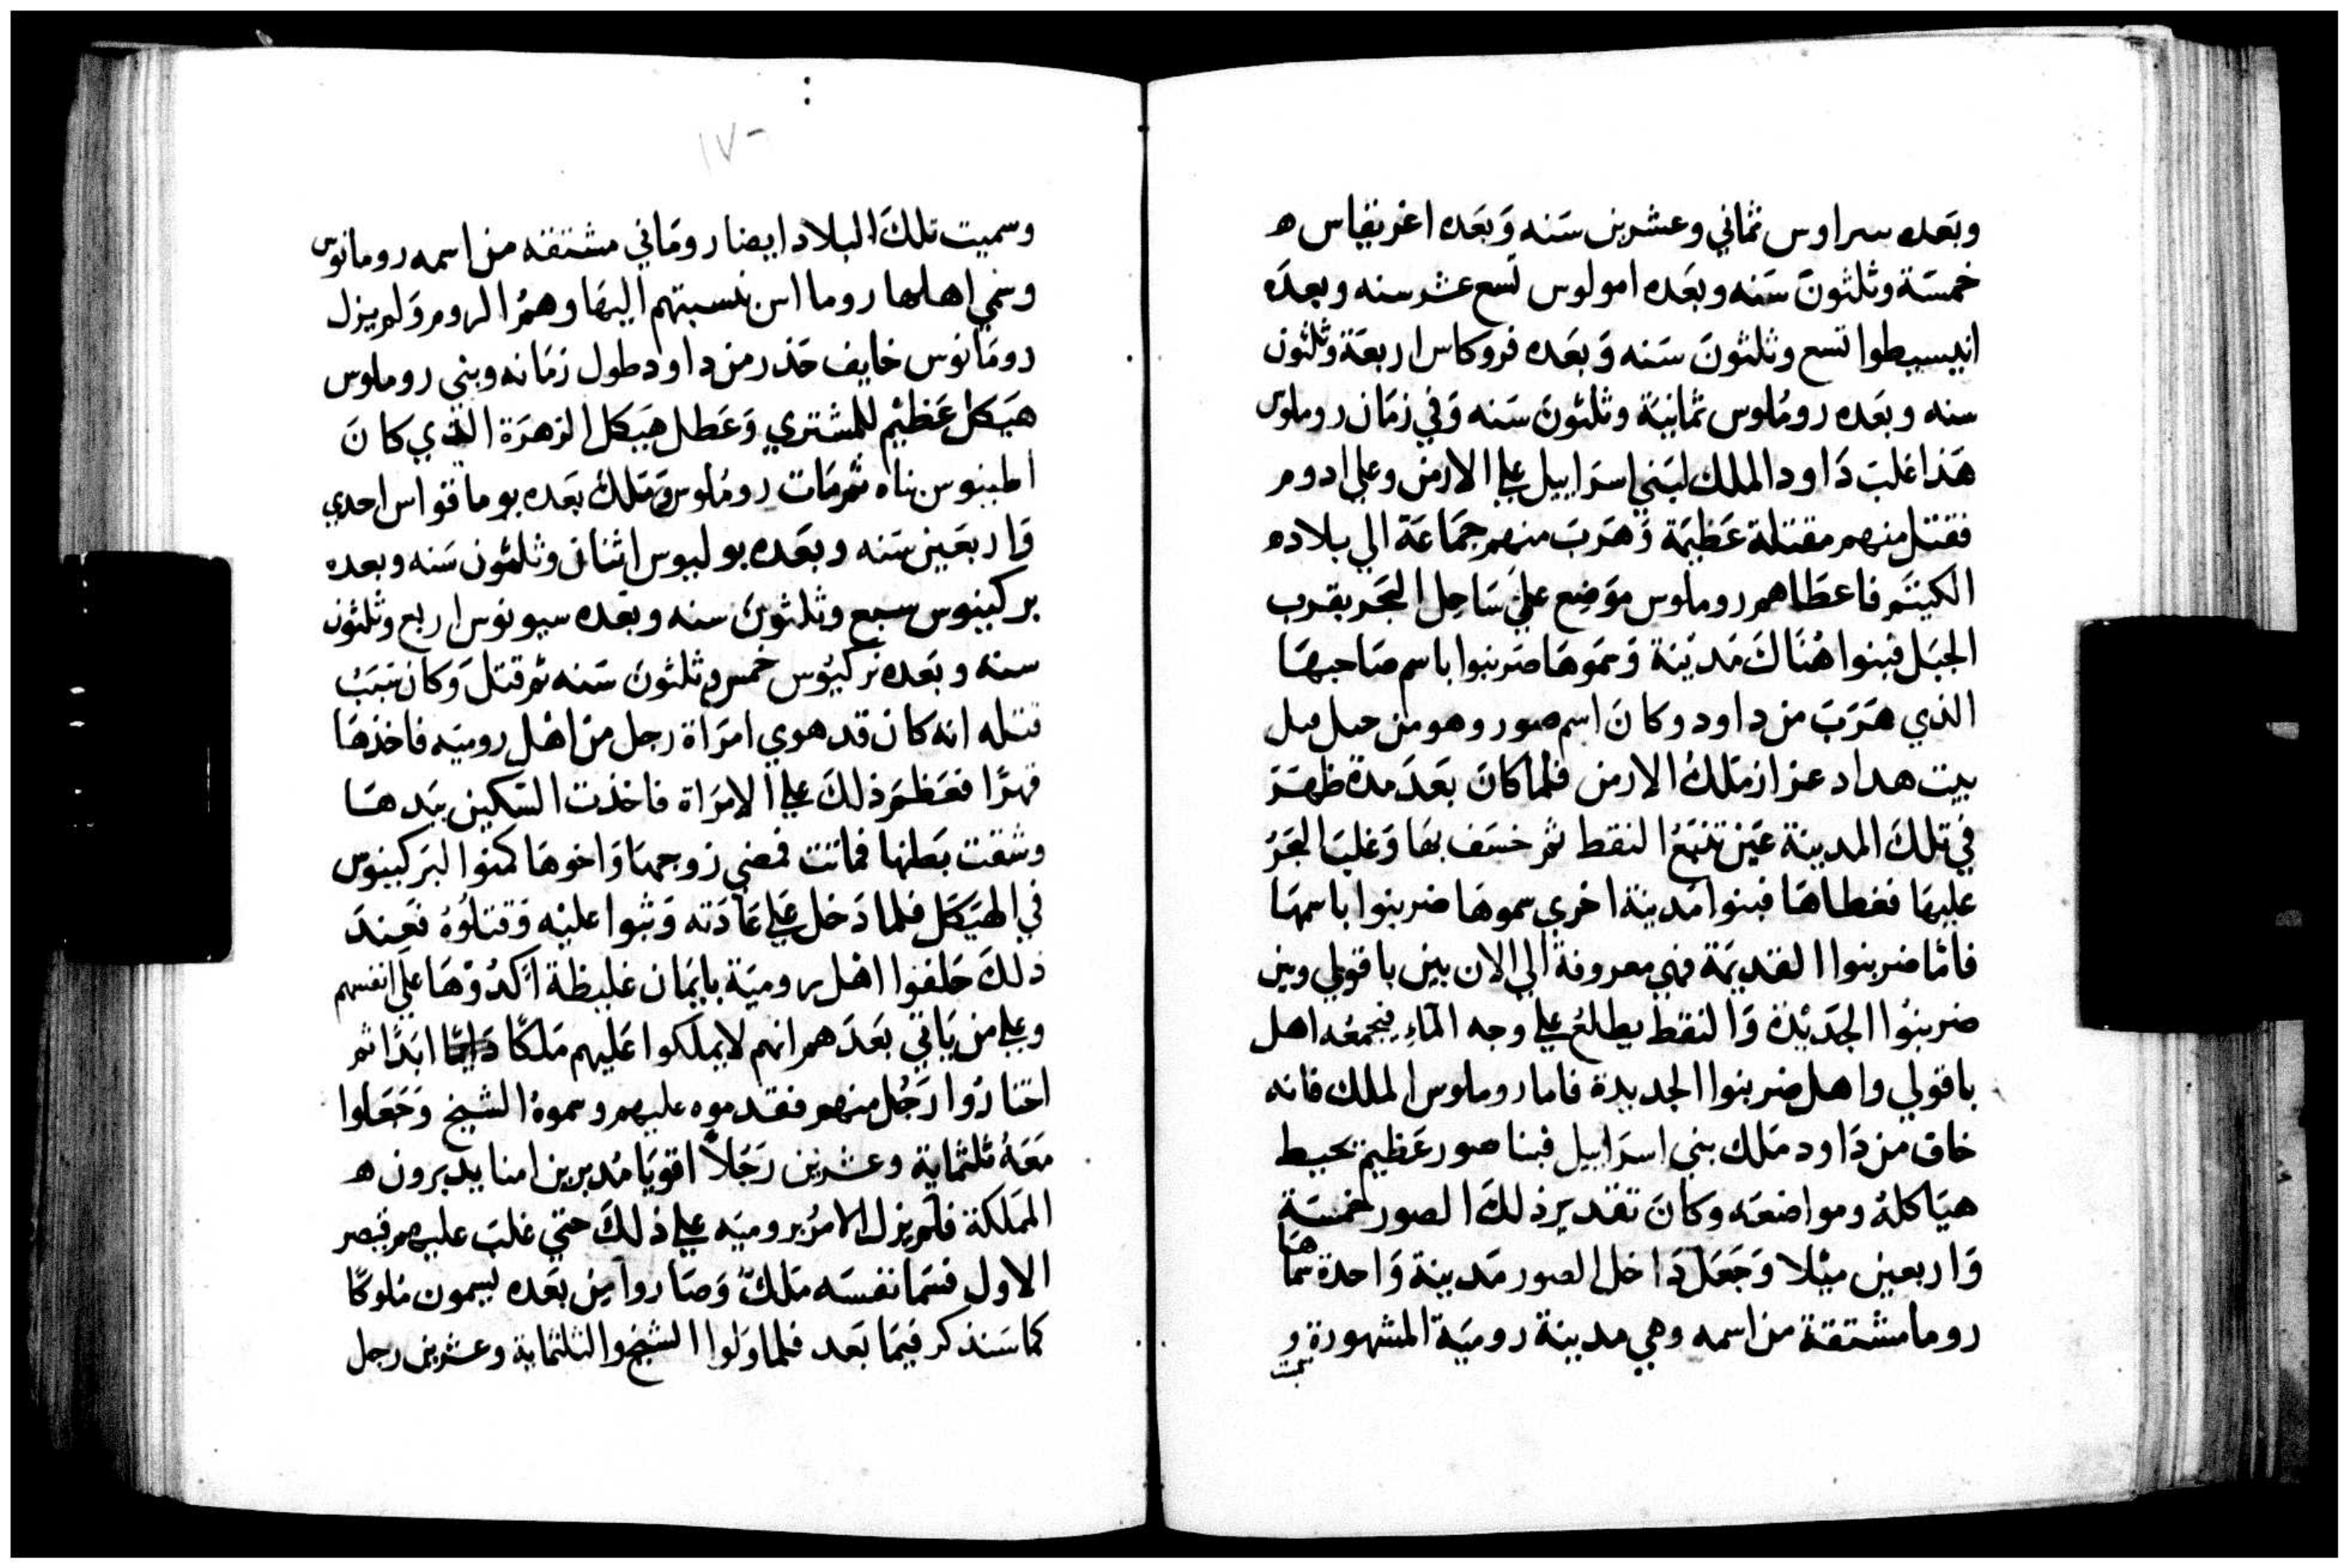 وبَعده سراوس ثماني وعشرين سَنه وَبَعَده اغريقاس ه
خمسَة وثلثونَ سَنه وبعَده امولوس تسع عشر سنه وبعدَه
انيسيطوا تسع وثلثونَ سَنه وَبعَده فروكاس اربعَة وثلثون
سنه وبعَده رومُلوس ثمانيَة وثلثونَ سَنه وَفي زمَان روملوس
هَذا غلبَ دَاود الملك لبَني اسرَاييل علي الارمن وعلي ادوم
فقتل منهم مقتلة عَظيمَة وَهَربَ منهم جمَاعَة الي بلاده
الكيتَم فاعطَاهم روملوس موَضِع عَليَ سَاحِل البَحر بقرب
الجبَل فبنوا هُنَاكَ مَديَنة وَسموَهَا ضَربنوا باسم صَاحبهَا
الذي هَرَبَ من داود وكانَ اسم صور وهو من
بيت هداد عزاز مَلكُ الارمن فلما كانَ بعَدَ مدة ظهَرَ
في تلكَ المدينَة عَين تنبَعُ النفط ثم خسَف بهَا وَغلبَ البحَرُ
عليهَا فغطاهَا فبنوا مَدينَة اخري سموهَا ضربنوا باسمهَا
فامَّا ضربنوا القديمَة فهي معروفة الي الان بين باقولي وبين
ضربنُوا الجَديْدَة وَالنفط يطلعُ علي وجه المَآءِ فيجمعُه اهل
باقولي واهل ضربنوا الجديدة فاما روملوس الملك فانه
خاف من دَاود مَلك بني اسرَاييل فبنا صور عَظيم يحيط
هيَاكلهُ ومواضعَه وكانَ تقدير ذلكَ الصور خمسَة
وَاربعين ميْلا وَجَعَلَ دَاخل الصور مَدينة وَاحدة سماهَا
روما مشتقة من اسمه وهي مدينة روميَة المشهورة و
سميت
١٧٠
وسميت تلكَ البلاد ايضا رومَاني مشتقه من اسمه رومانوس
وسَمي اهلها روما اس نسبتهم اليهَا وهمُ الروم وَلم يزل
رومَانوس خايف حَذر من داود طول زمَانه وبني روملوس
هَيَكل عَظيْم للمشتري وَعَطل هيَكل الزهرَة الذي كانَ
اطينوس بناه ثم مَات رومُلوس وَمَلك بَعَده بوماقنواس احدي
وَاربعَين سَنه وبعَده بوليوس اثنان وثلثون سَنه وبعده
بركينوس سبع وثلثونَ سنه وبعَده سيونوس اربع وثلثون
سنه وبعَده تركيوس خمس وثلثونَ سَنه ثم قتلَ وَكان سَبَبُ
قتله انه كان قد هوي امرَاة رجل من اهْل روميَه فاخذهَا
قهرًا فعَظمَ ذلكَ علي الامرَاة فاخذت السَكين بيَدهَا
وشقت بَطنها فماتت فمضي زوجهَا وَاخوهَا كمنوا لبَركينوس
في الهيَكَل فلما دَخل عَلي عَادَته وَثبوا عليْه وَقتلوُهُ فعِندَ
ذلكَ حَلفوا اهْل روميَة بايمَان غليظة اكدُوْهَا عَلي انفسهم
وعلي من يَاتي بعَدَ هم انهم لا يملكوا عَليهم مَلكًا دَايمًا ابَدًا ثم
اختارُوا رَجُل منهم فقدموه عليهم وسموهُ الشيخ وَجَعَلوا
مَعَهُ ثلثمايَة وعشرين رَجَلاً اقويَا مُدبرين امنا يدبرون ه
المَلكة فلَم يزل الامرُ بروميَه علي ذلكَ حتي غلبَ عليهم قيصر
الاول فسَما نفسَه مَلكً وَصَاروا مِن بَعَده يسمون مُلوكًا
كما سَنذكر فيمَا بَعَد فلما وَلوا الشيخ والثلثماية وعشرين رجل